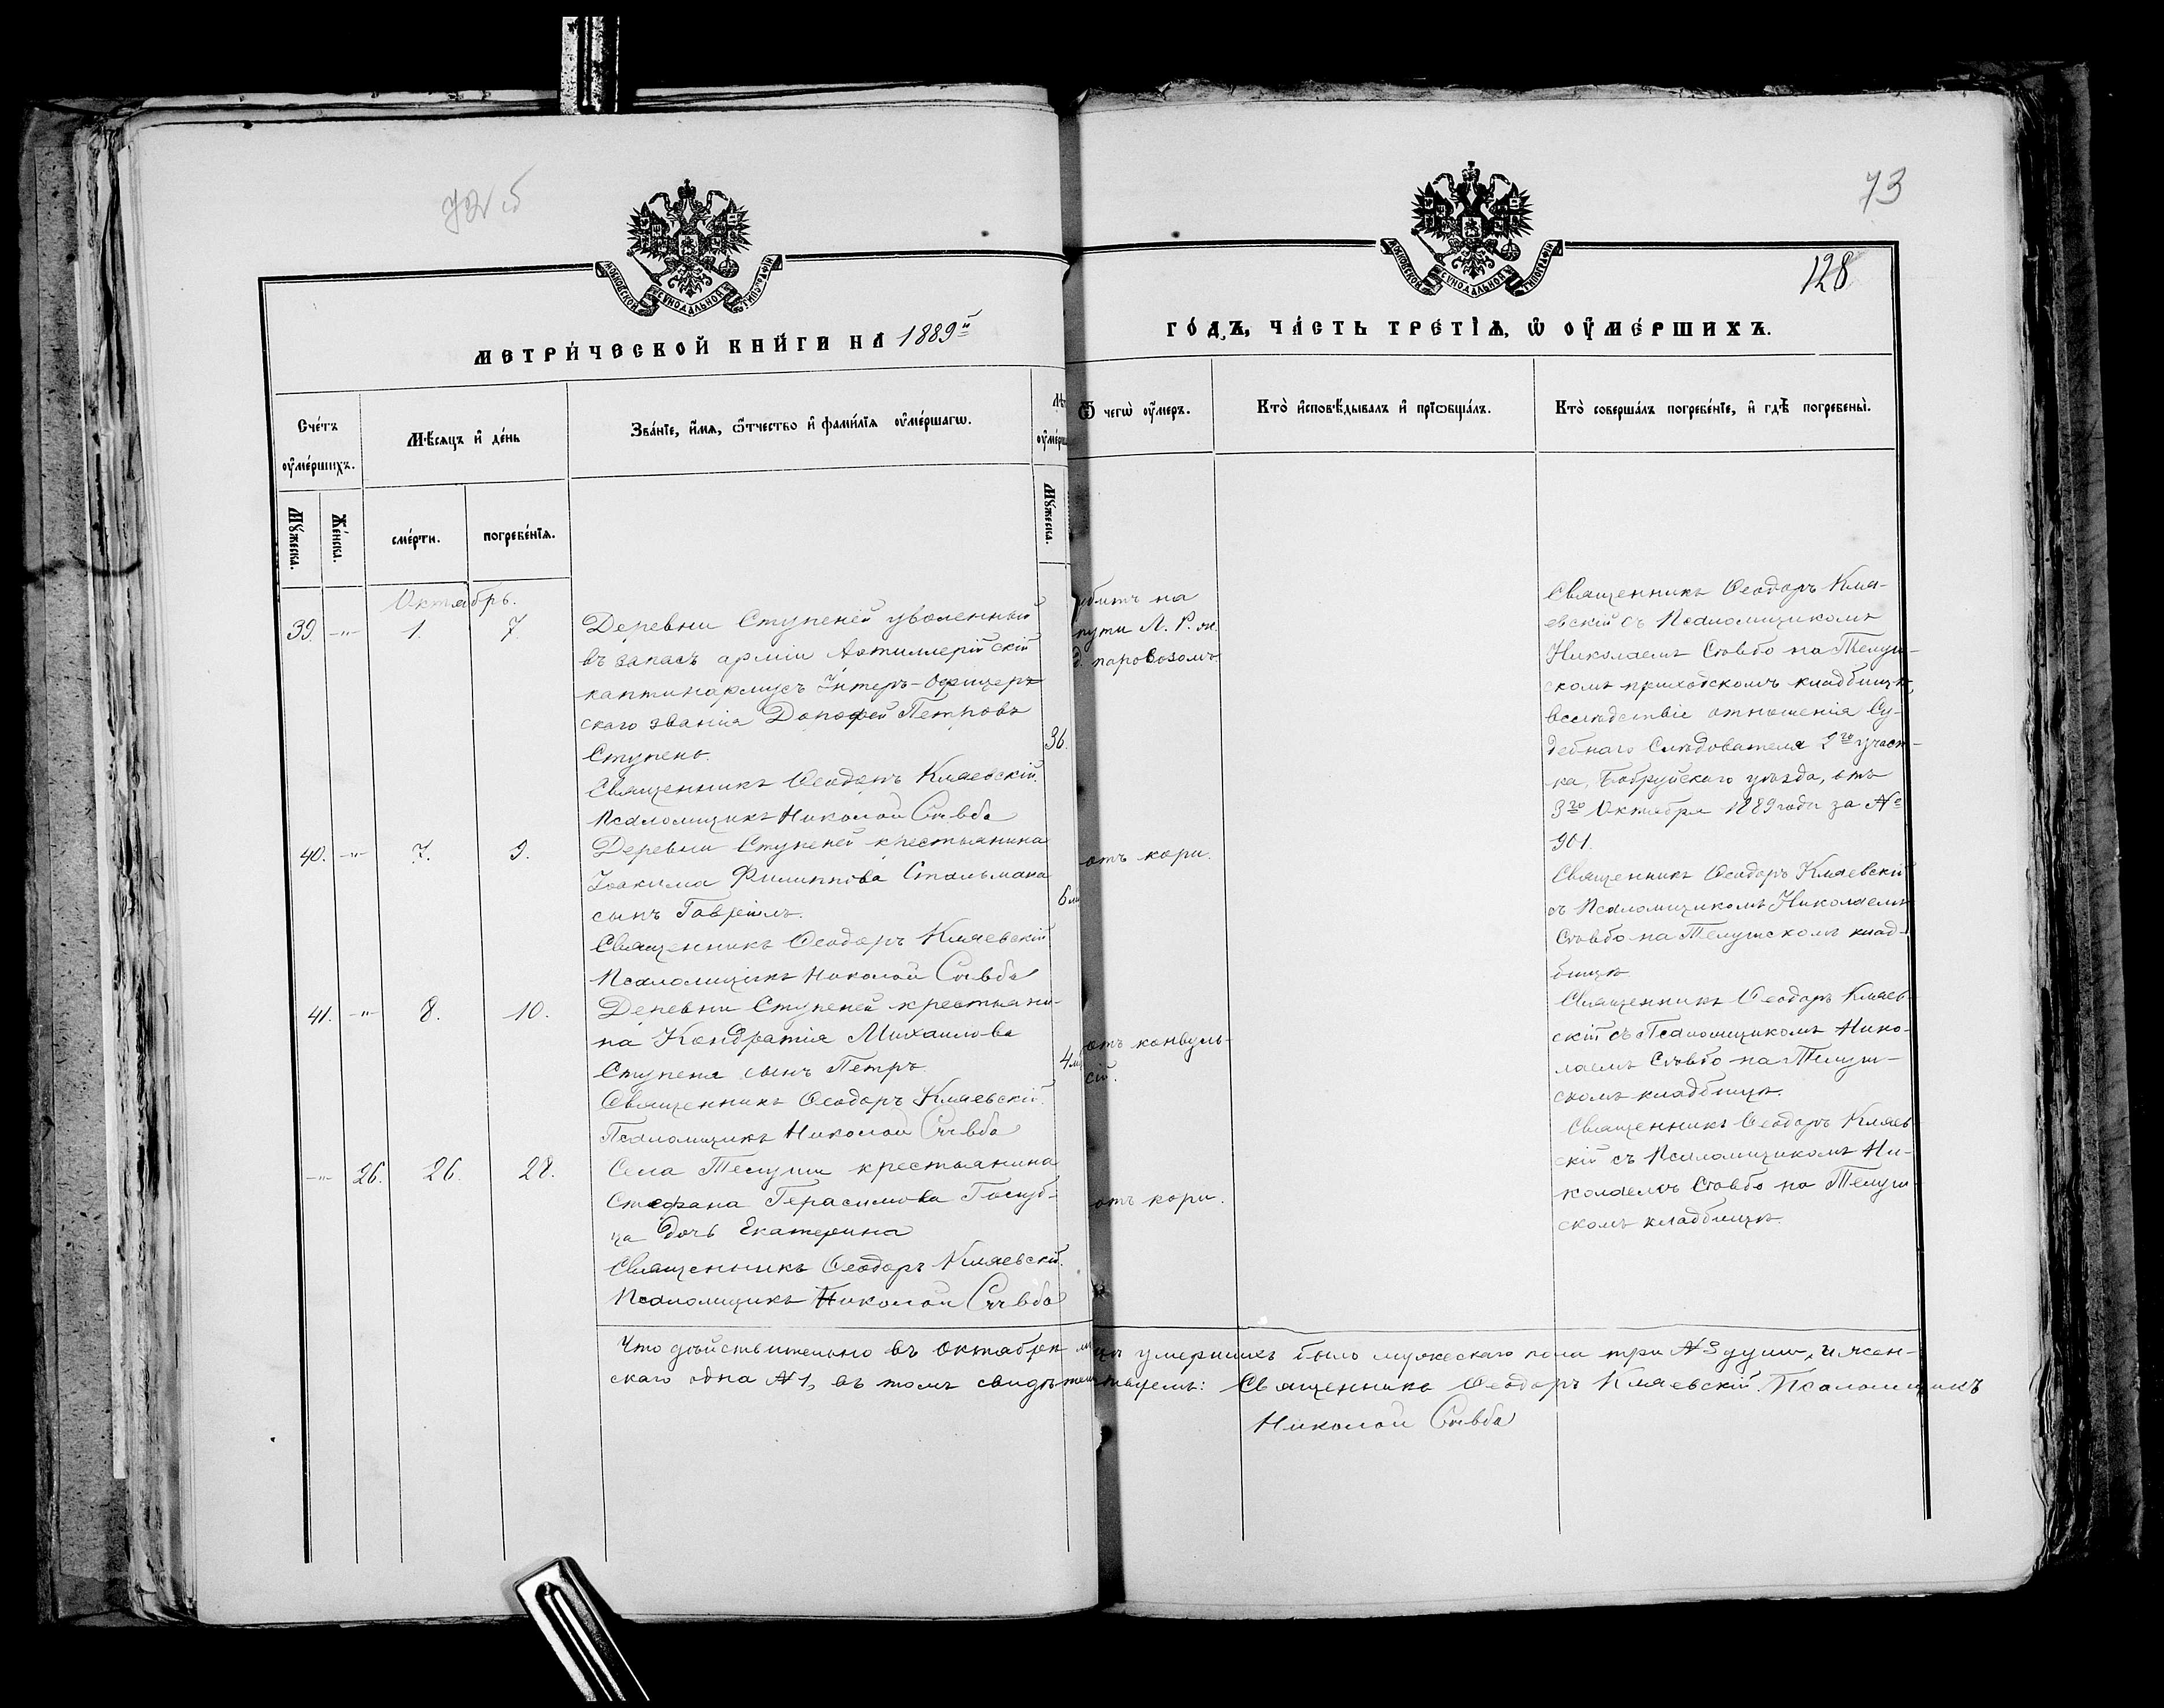 72 об
73
128
МОСКОВСКОЙ СѴНОДАЛЬНОЙ ТИПОГРАФІИ
МОСКОВСКОЙ СѴНОДАЛЬНОЙ ТИПОГРАФІИ
МЕТРИ́ЧЕСКОЙ КНИ́ГИ НА 1889й
ГО́ДЪ, ЧА́СТЬ ТРЕ́ТІѦ, Ѡ ОУ҆МЕ́РШИХЪ.
Сче́тъ
оу҆ме́ршихъ.
Мꙋ́жеска.
Же́нска.
Мѣ́сяцъ и҆ де́нь
сме́рти.
погребе́нїѧ.
Зва́нїе, и҆́мѧ, ѻ҆́тчество и҆ фами́лїѧ оу҆ме́ршагѡ.
Лѣ
оу҆ме́рш
Мꙋ́жеска.
Ѿ чегѡ̀ оу҆́меръ.
Кто̀ и҆сповѣ́дывалъ и҆ прїѡбща́лъ.
Кто̀ соверша́лъ погребе́нїе, и҆ гдѣ̀ погребены̀.
Октябрь.
39. -"- 1. 7.
Деревни Ступеней уволенный
въ запасъ арміи Артиллерійскій
каптинармусъ Унтеръ-Офицер-
скаго званія Дорофей Петровъ
Ступень.
36.
Священникъ Ѳеодоръ Кляевскій.
Псаломщикъ Николай Савба
убитъ на
пути Л. Р. ж.
д. паровозомъ.
Священникъ Ѳеодоръ Кля-
евскій съ Псаломщикомъ
Николаемъ Савбо на Телуш-
скомъ приходскомъ кладбищѣ,
вслѣдствіе отношенія Су-
дебнаго Слѣдователя 2го участ-
ка, Бобруйскаго уѣзда, отъ
3го Октября 1889 года за №
901.
40. -"- 7. 9.
Деревни Ступеней крестьянина
Іоакима Филиппова Стальмака
сынъ Гавріилъ.
6 м
Священникъ Ѳеодоръ Кляевскій
Псаломщикъ Николай Савба
отъ кори.
Священникъ Ѳеодоръ Кляевскій
съ Псаломщикомъ Николаемъ
Савбо на Телушскомъ клад-
бищѣ
41. -"- 8. 10.
Деревни Ступеней крестьяни-
на Кондратія Михаилова
Ступеня сынъ Петръ.
4 м
Священникъ Ѳеодоръ Кляевскій.
Псаломщикъ Николай Савба
отъ конвуль-
сій.
Священникъ Ѳеодоръ Кляев-
скій съ Псаломщикомъ Нико-
лаемъ Савбо на Телуш-
скомъ кладбищѣ.
-"- 26. 26. 28.
Села Телуши крестьянина
Стефана Герасимова
ца дочь Екатерина
Священникъ Ѳеодоръ Кляевскій.
Псаломщикъ Николай Савба
отъ кори.
Священникъ Ѳеодоръ Кляев
скій съ Псаломщикомъ Ни-
колаемъ Савбо на Телуш
скомъ кладбищѣ.
Что дѣйствительно въ Октябрѣ мцѣ умершихъ было мужескаго пола три №3 душъ, и жен-
скаго одна №1, въ томъ свидѣтельствуемъ: Священникъ Ѳеодоръ Кляевскій. Псаломщикъ
Николай Савба